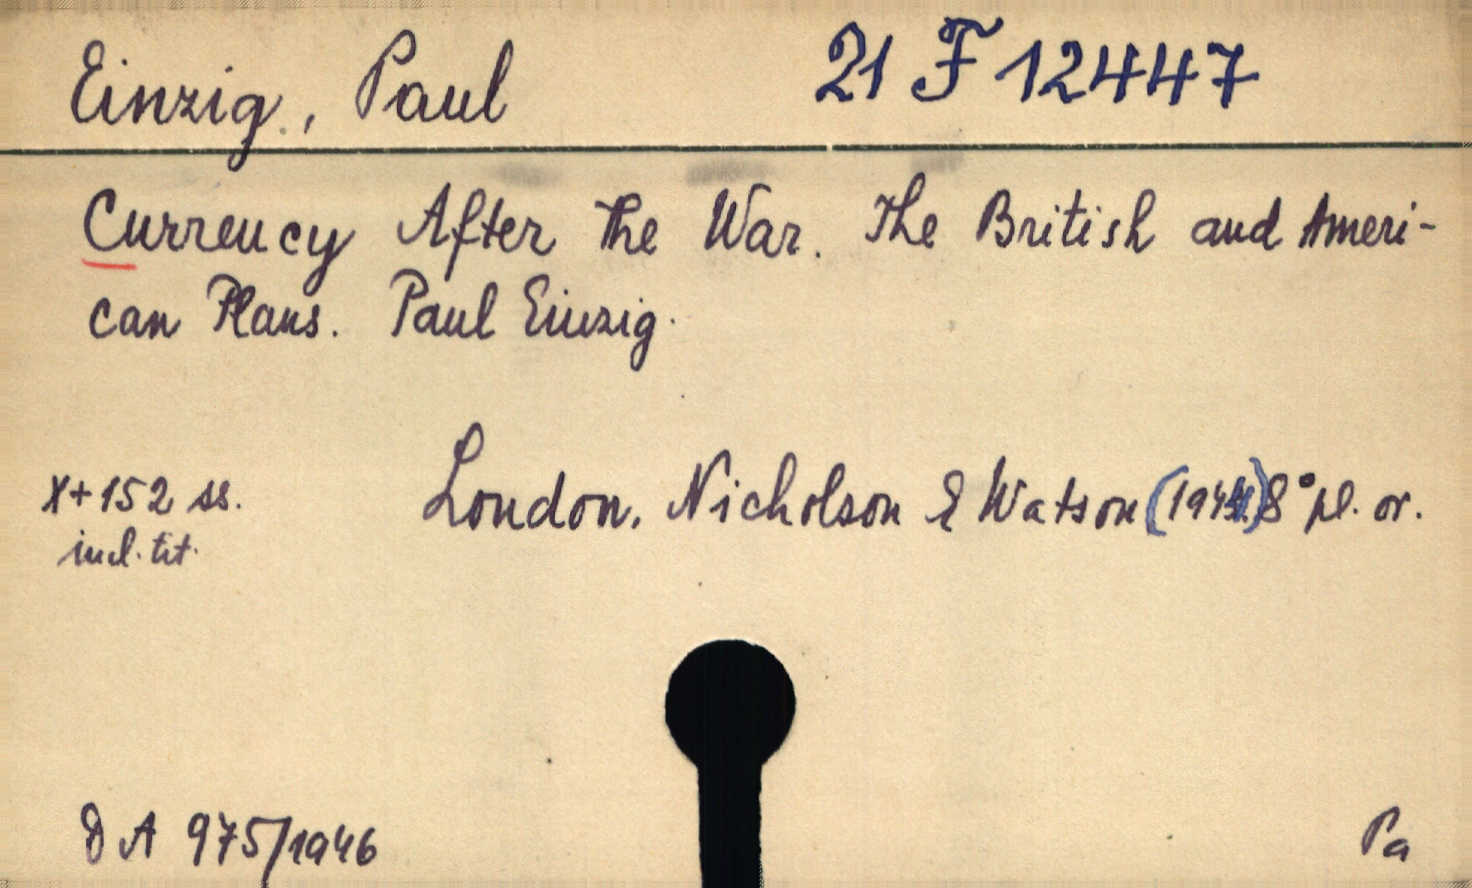 Einzig, Paul 21 F 12447
Currency After the War. The British and Ameri-
can Plans. Paul Einzig.
X+152 ss. London, Nicholson & Watson (1944.) 8° pl. or.
incl. tit.
D A 975/1946 Pa